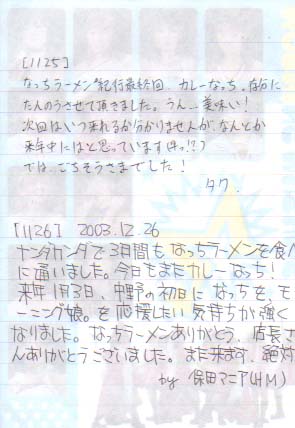 [1125]
なっちラーメン紀行最終回、カレーなっち、存分に
たんのうさせて頂きました。うん…美味い!
次回はいつ来れるか分かりませんが、なんとか
来年中にはと思っています(キッ!?)
では、ごちそうさまでした!
タク.
[1126] 2003.12.26
ナンダカンダで3日間もなっちラーメンを食べ
に通いました。今日もまたカレーなっち!
来年1月3日、中野の初日になっちを、モ
ーニング娘。を応援したい気持ちが強く
なりました。なっちラーメンありがとう、店長さ
んありがとうございました。また来ます、絶対
by 保田マニア(HM)